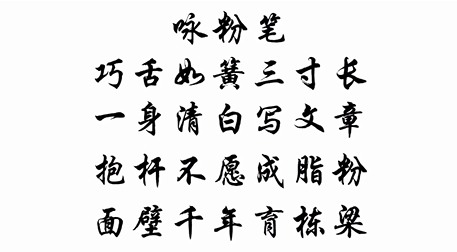 咏粉笔
巧舌如簧三寸长
一身清白写文章
抱杆不愿成脂粉
面壁千年育栋梁